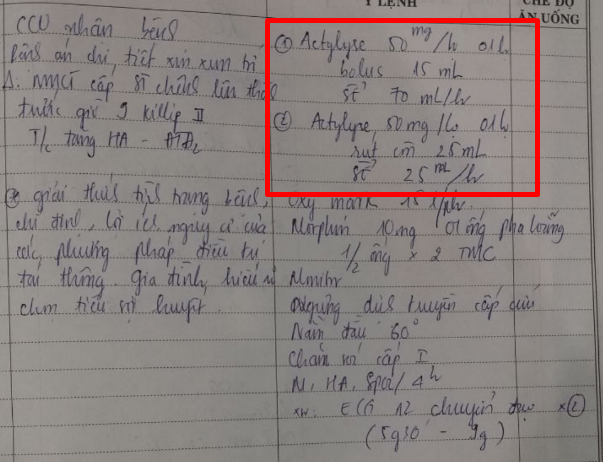 Y LỆNH
CHẾ ĐỘ
ĂN UỐNG
CCU nhận bệnh
Bệnh án chi tiết xin xem trị
Δ. NMCT cấp ST chênh lên
trước giờ 9 Killip II
T/c tăng HA - ĐTĐ2
giải thích tình trạng bệnh,
chỉ định, lợi ích, nguy cơ của
các phương pháp điều trị
tái thông. gia đình hiểu và
chọn tiêu sợi huyết.
① Actylyse 50mg/lọ 01 lọ
bolus 15 mL
SE 70 mL/hr
② Actylyse 50mg/lọ 01 lọ
rút còn 25 mL
SE 25 mL/hr
Oxy mask 15 l/ph.
Morphin 10mg 01 ống pha loãng
1/2 ống x 2 TMC
Monitor
Ngưng dịch truyền cấp cứu
Nằm đầu 30°
Chăm sóc cấp I
M, HA, SpO2/4h
XN: ECG 12 chuyển đạo x②
(5g30 - 9g)